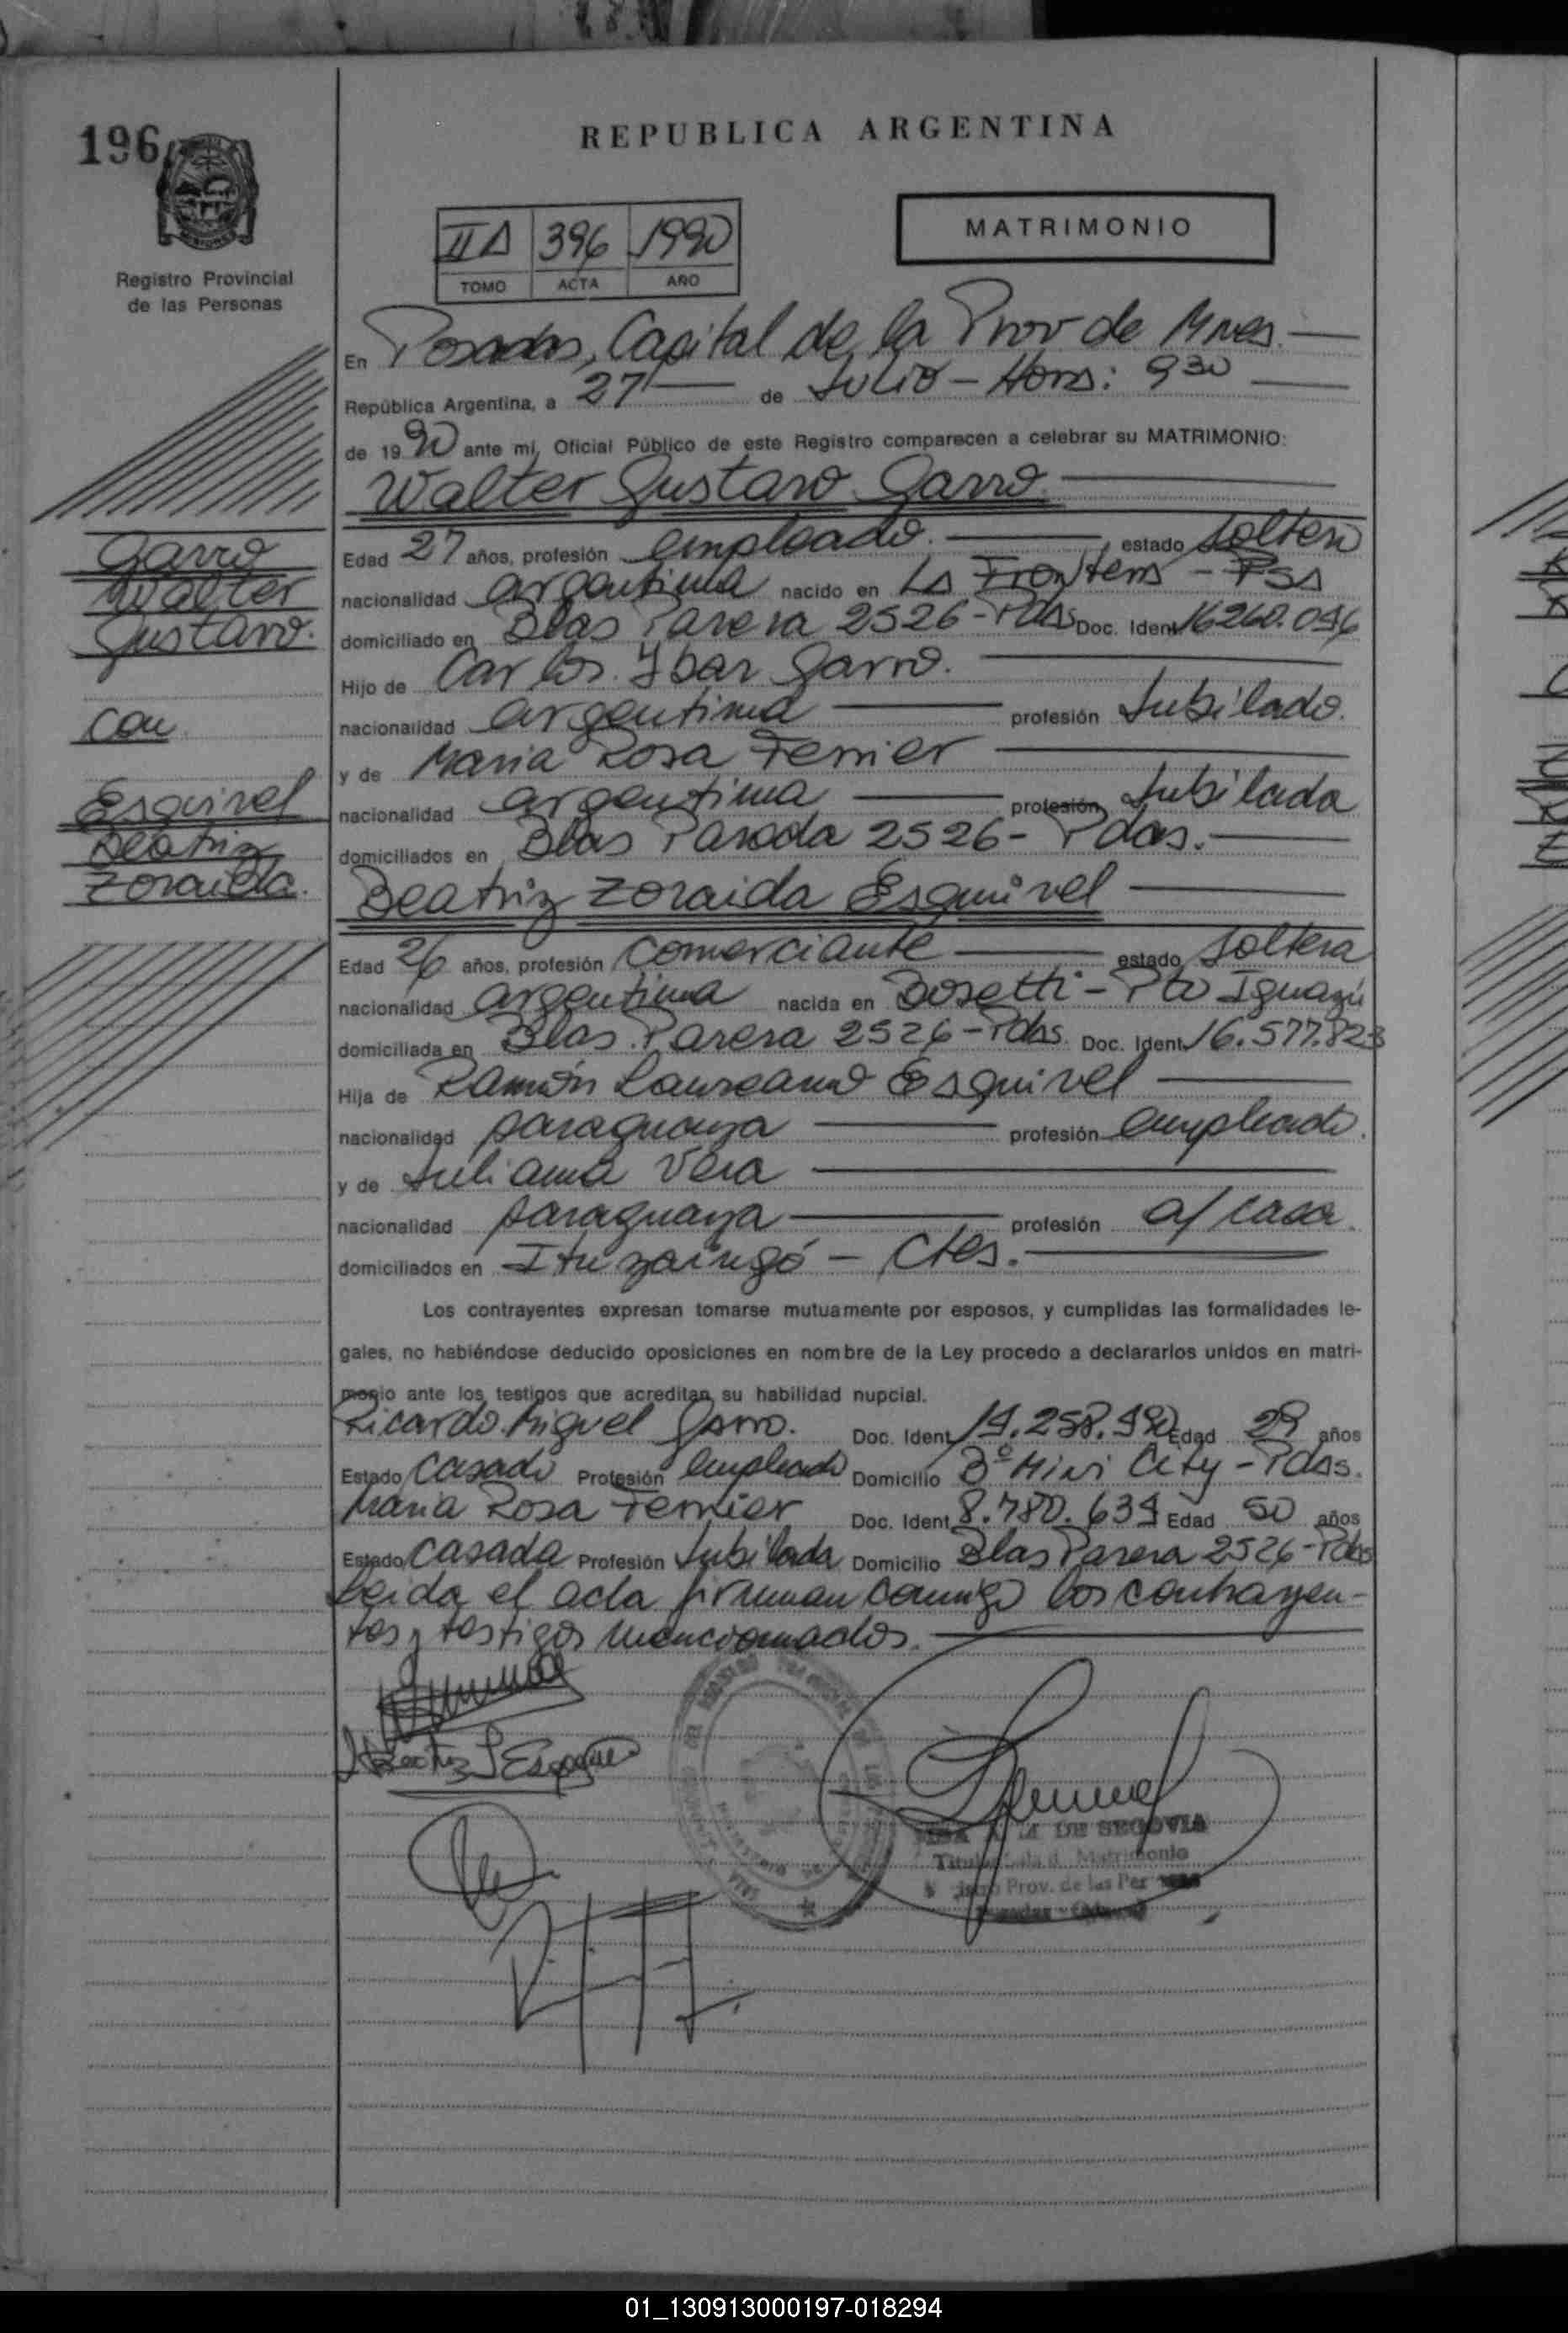 196
Registro Provincial
de las Personas
REPUBLICA ARGENTINA
MATRIMONIO
II A 396 1990
TOMO ACTA AÑO
En Posadas, Capital de la Prov de Mnes.
República Argentina, a 27 de Julio - Hora: 9 30
de 1990 ante mi, Oficial Público de este Registro comparecen a celebrar su MATRIMONIO:
Walter Gustavo Garro
Garro
Walter
Gustavo.
con
Esquivel
Beatriz
Zoraida.
Edad 27 años, profesión empleado. estado soltero
nacionalidad argentina nacido en La Frontera -
domiciliado en Blas Parera 2526 - Pdas Doc. Ident. 16260.096
Hijo de Carlos Ibar Garro.
nacionalidad argentina profesión Jubilado.
y de Maria Rosa Ferrier
nacionalidad argentina profesión Jubilada
domiciliados en Blas Parada 2526 - Pdas.
Beatriz Zoraida Esquivel
Edad 26 años, profesión comerciante estado soltera
nacionalidad argentina nacida en Bosetti - Pto Iguazú
domiciliada en Blas Parera 2526 - Pdas. Doc. Ident. 16.577.823
Hija de Ramón Laureano Esquivel
nacionalidad paraguaya profesión empleado.
y de Juliana Vera
nacionalidad paraguaya profesión a/casa.
domiciliados en Ituzaingó - Ctes.
Los contrayentes expresan tomarse mutuamente por esposos, y cumplidas las formalidades le-
gales, no habiéndose deducido oposiciones en nombre de la Ley procedo a declararlos unidos en matri-
monio ante los testigos que acreditan su habilidad nupcial.
Ricardo Miguel Garro. Doc. Ident. 14.258.990 Edad 29 años
Estado casado Profesión empleado Domicilio Bº Mini City - Pdas.
Maria Rosa Ferrier Doc. Ident. 8.780.634 Edad 50 años
Estado casada Profesión Jubilada Domicilio Blas Parera 2526 - Pdas
Leida el acta firman conmigo los contrayen-
tes y testigos mencionados.
Beatriz Z Esquivel
DE SEGOVIA
Matrimonio
Prov. de las Per
01_130913000197-018294